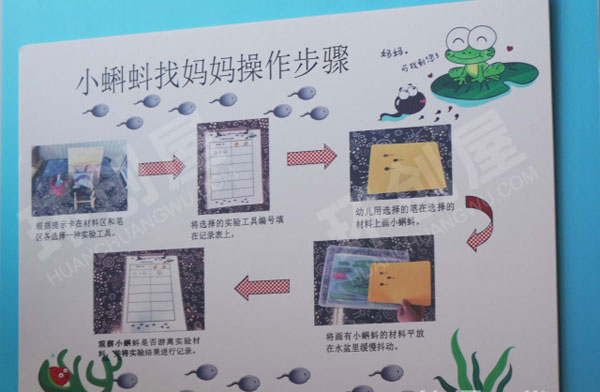 小蝌蚪找妈妈操作步骤
妈妈,
可找到您了
根据提示卡在材料区和笔
区各选择一种实验工具。
将选择的实验工具编号填
在记录表上。
幼儿用选择的笔在选择的
材料上画小蝌蚪。
观察小蝌蚪是否游离实验材
料,并将实验结果进行记录。
将画有小蝌蚪的材料平放
在水盆里缓慢抖动。
环创屋
HUANCHUANGWU.COM